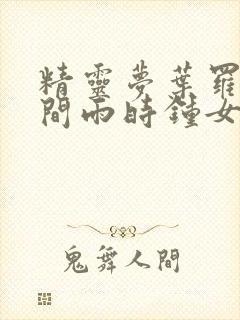 精靈夢葉羅
間雨時鐘女
鬼舞人間